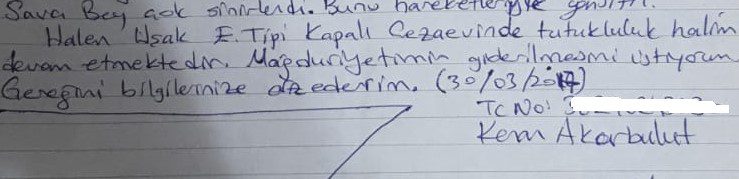 Savcı Bey çok sinirlendi. Bunu hareketleriyle gösterdi.
Halen Uşak E. Tipi Kapalı Cezaevinde tutukluluk halim
devam etmektedir. Mağduriyetimin giderilmesini istiyorum
Gereğini bilgilerinize arz ederim. (30/03/2017)
TC NO:
Kerim Akarbulut